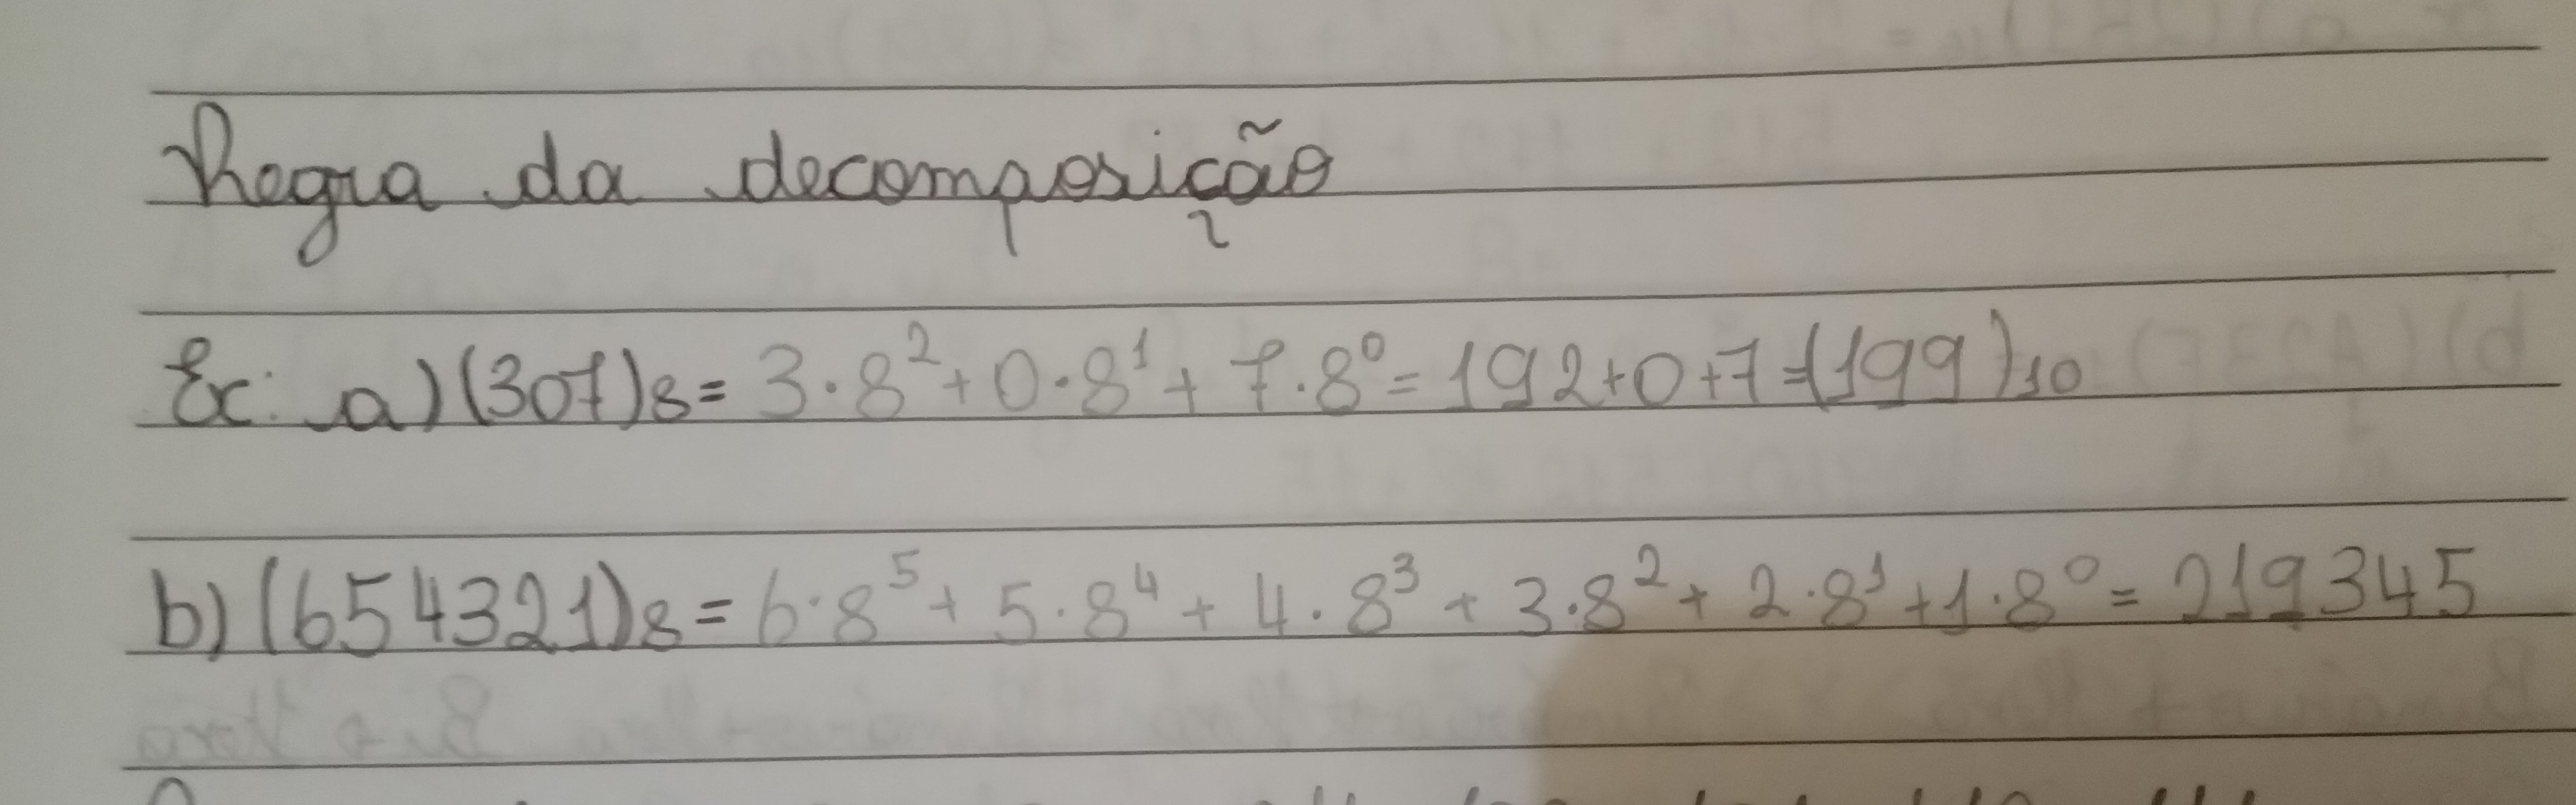 Regra da decomposição
Ex: a) (307)8 = 3·8² + 0·8¹ + 7·8⁰ = 192+0+7=(199)10
b) (654321)8 = 6·8⁵ + 5·8⁴ + 4·8³ + 3·8² + 2·8¹ + 1·8⁰ = 219345